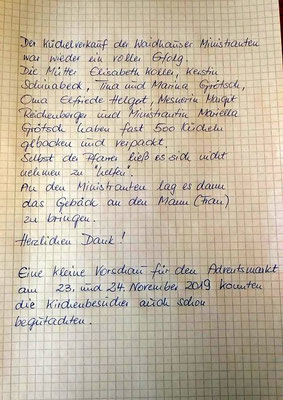 Der Küchelverkauf der Waidhauser Ministranten
war wieder ein voller Erfolg.
Die Mütter Elisabeth Koller, Kerstin
Schnabeck, Tina und Marina Grötsch,
Oma Elfriede Helgert, Mesnerin Margit
Reichenberger und Ministrantin Mariella
Grötsch haben fast 500 Kücheln
gebacken und verpackt.
Selbst der Pfarrer ließ es sich nicht
nehmen zu "helfen".
An den Ministranten lag es dann
das Gebäck an den Mann (Frau)
zu bringen.
Herzlichen Dank!
Eine kleine Vorschau für den Adventsmarkt
am 23. und 24. November 2019 konnten
die Kirchenbesucher auch schon
begutachten.